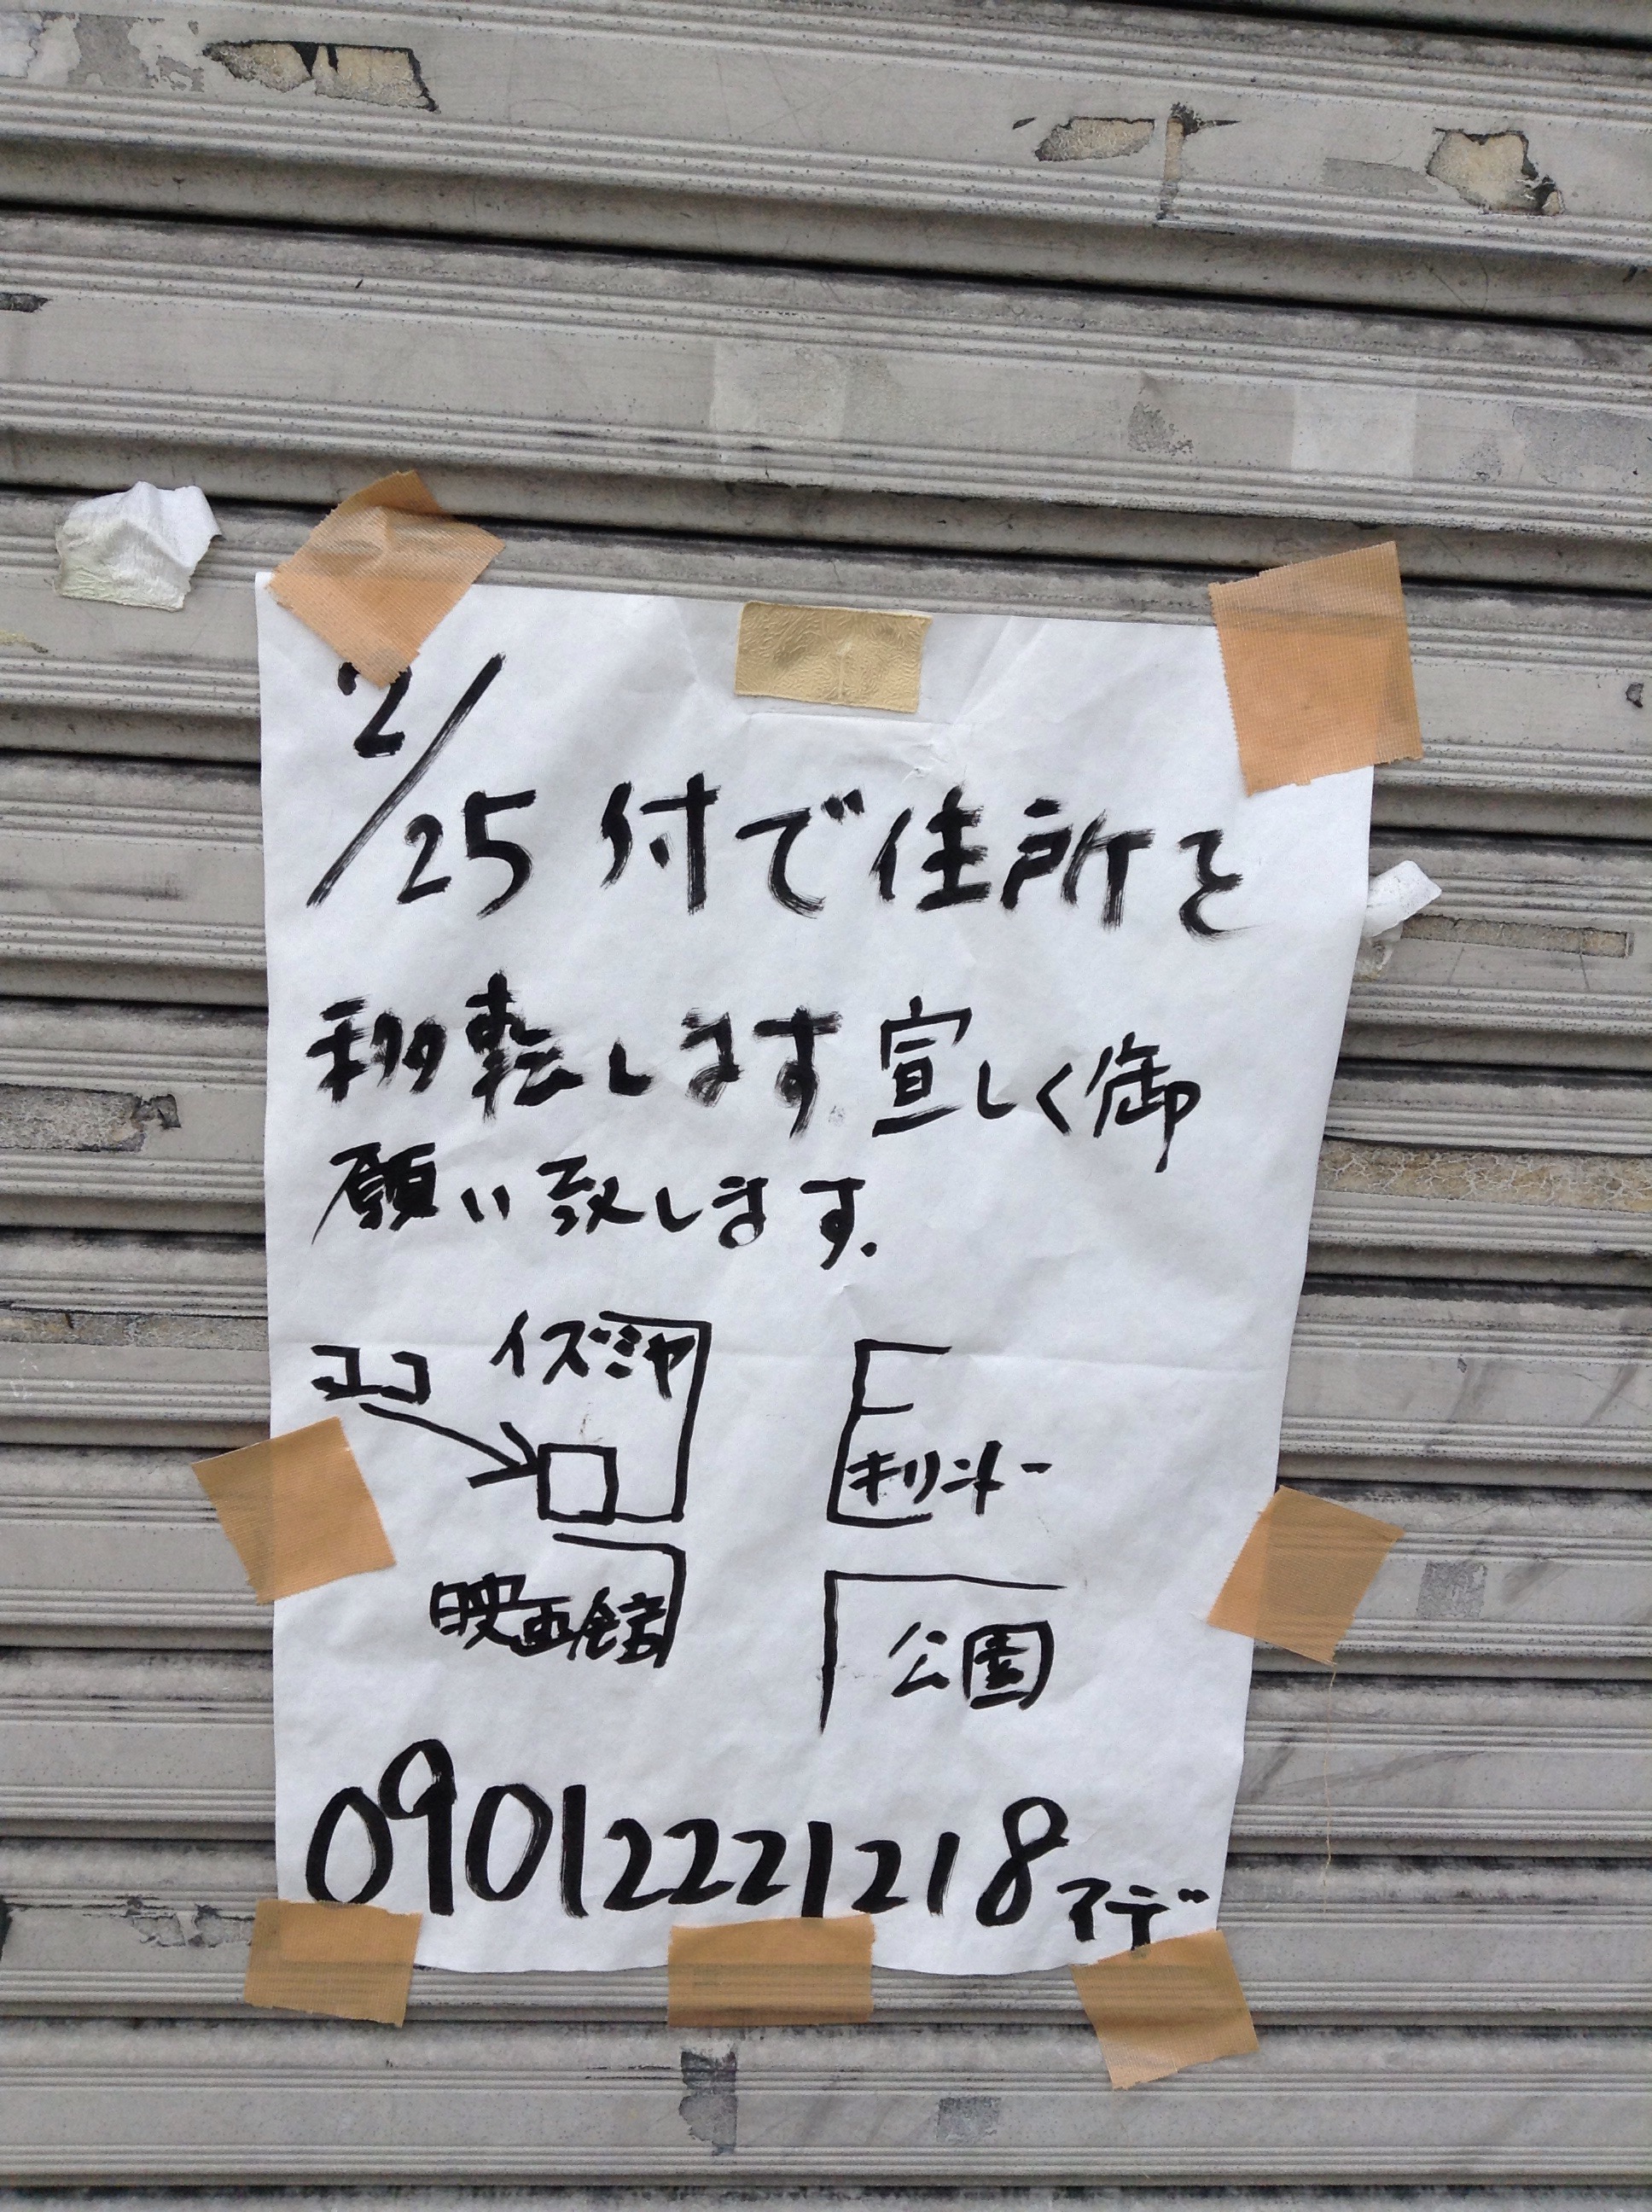 2/25付で住所を
移転します宣しく御
願い致します.
ココ
イズミヤ
キリントー
映画館
公園
09012221218マデ